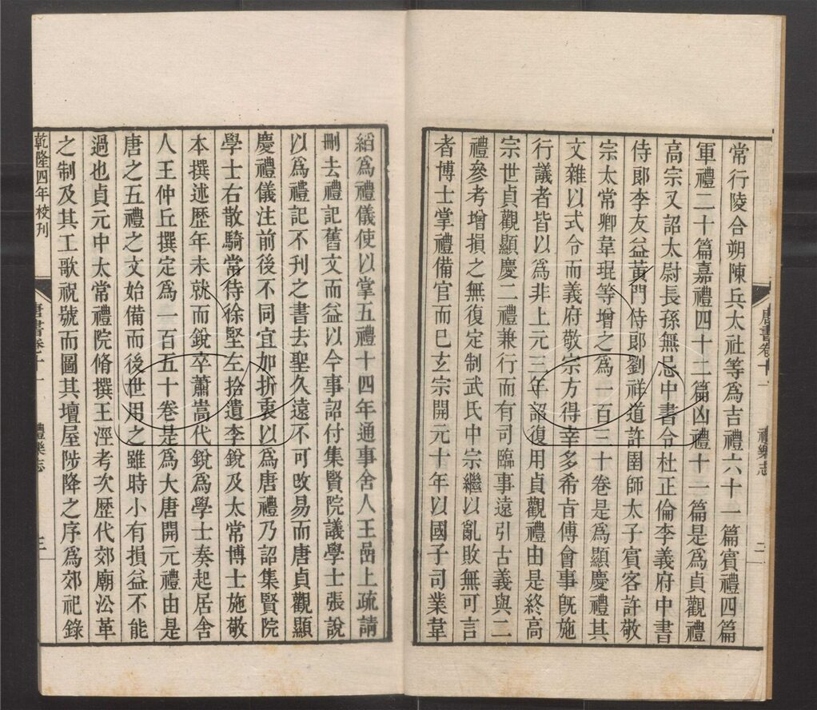 常行陵合朔陳兵太社等爲吉禮六十一篇賓禮四篇
軍禮二十篇嘉禮四十二篇凶禮十一篇是爲貞觀禮
高宗又詔太尉長孫無忌中書令杜正倫李義府中書
侍郎李友益黃門侍郎劉祥道許圉師太子賓客許敬
宗太常卿韋琨等增之爲一百三十卷是爲顯慶禮其
文雜以式令而義府敬宗方得幸多希旨傅會事旣施
行議者皆以爲非上元三年詔復用貞觀禮由是終高
宗世貞觀顯慶二禮兼行而有司臨事遠引古義與二
禮參考增損之無復定制武氏中宗繼以亂敗無可言
者博士掌禮備官而已玄宗開元十年以國子司業韋
唐書卷十一
禮樂志
二
縚爲禮儀使以掌五禮十四年通事舍人王嵒上疏請
刪去禮記舊文而益以今事詔付集賢院議學士張說
以爲禮記不刊之書去聖久遠不可改易而唐貞觀顯
慶禮儀注前後不同宜加折衷以爲唐禮乃詔集賢院
學士右散騎常侍徐堅左拾遺李銳及太常博士施敬
本撰述歷年未就而銳卒蕭嵩代銳爲學士奏起居舍
人王仲丘撰定爲一百五十卷是爲大唐開元禮由是
唐之五禮之文始備而後世用之雖時小有損益不能
過也貞元中太常禮院脩撰王涇考次歷代郊廟沿革
之制及其工歌祝號而圖其壇屋陟降之序爲郊祀錄
乾隆四年校刊
唐書卷十一
禮樂志
三